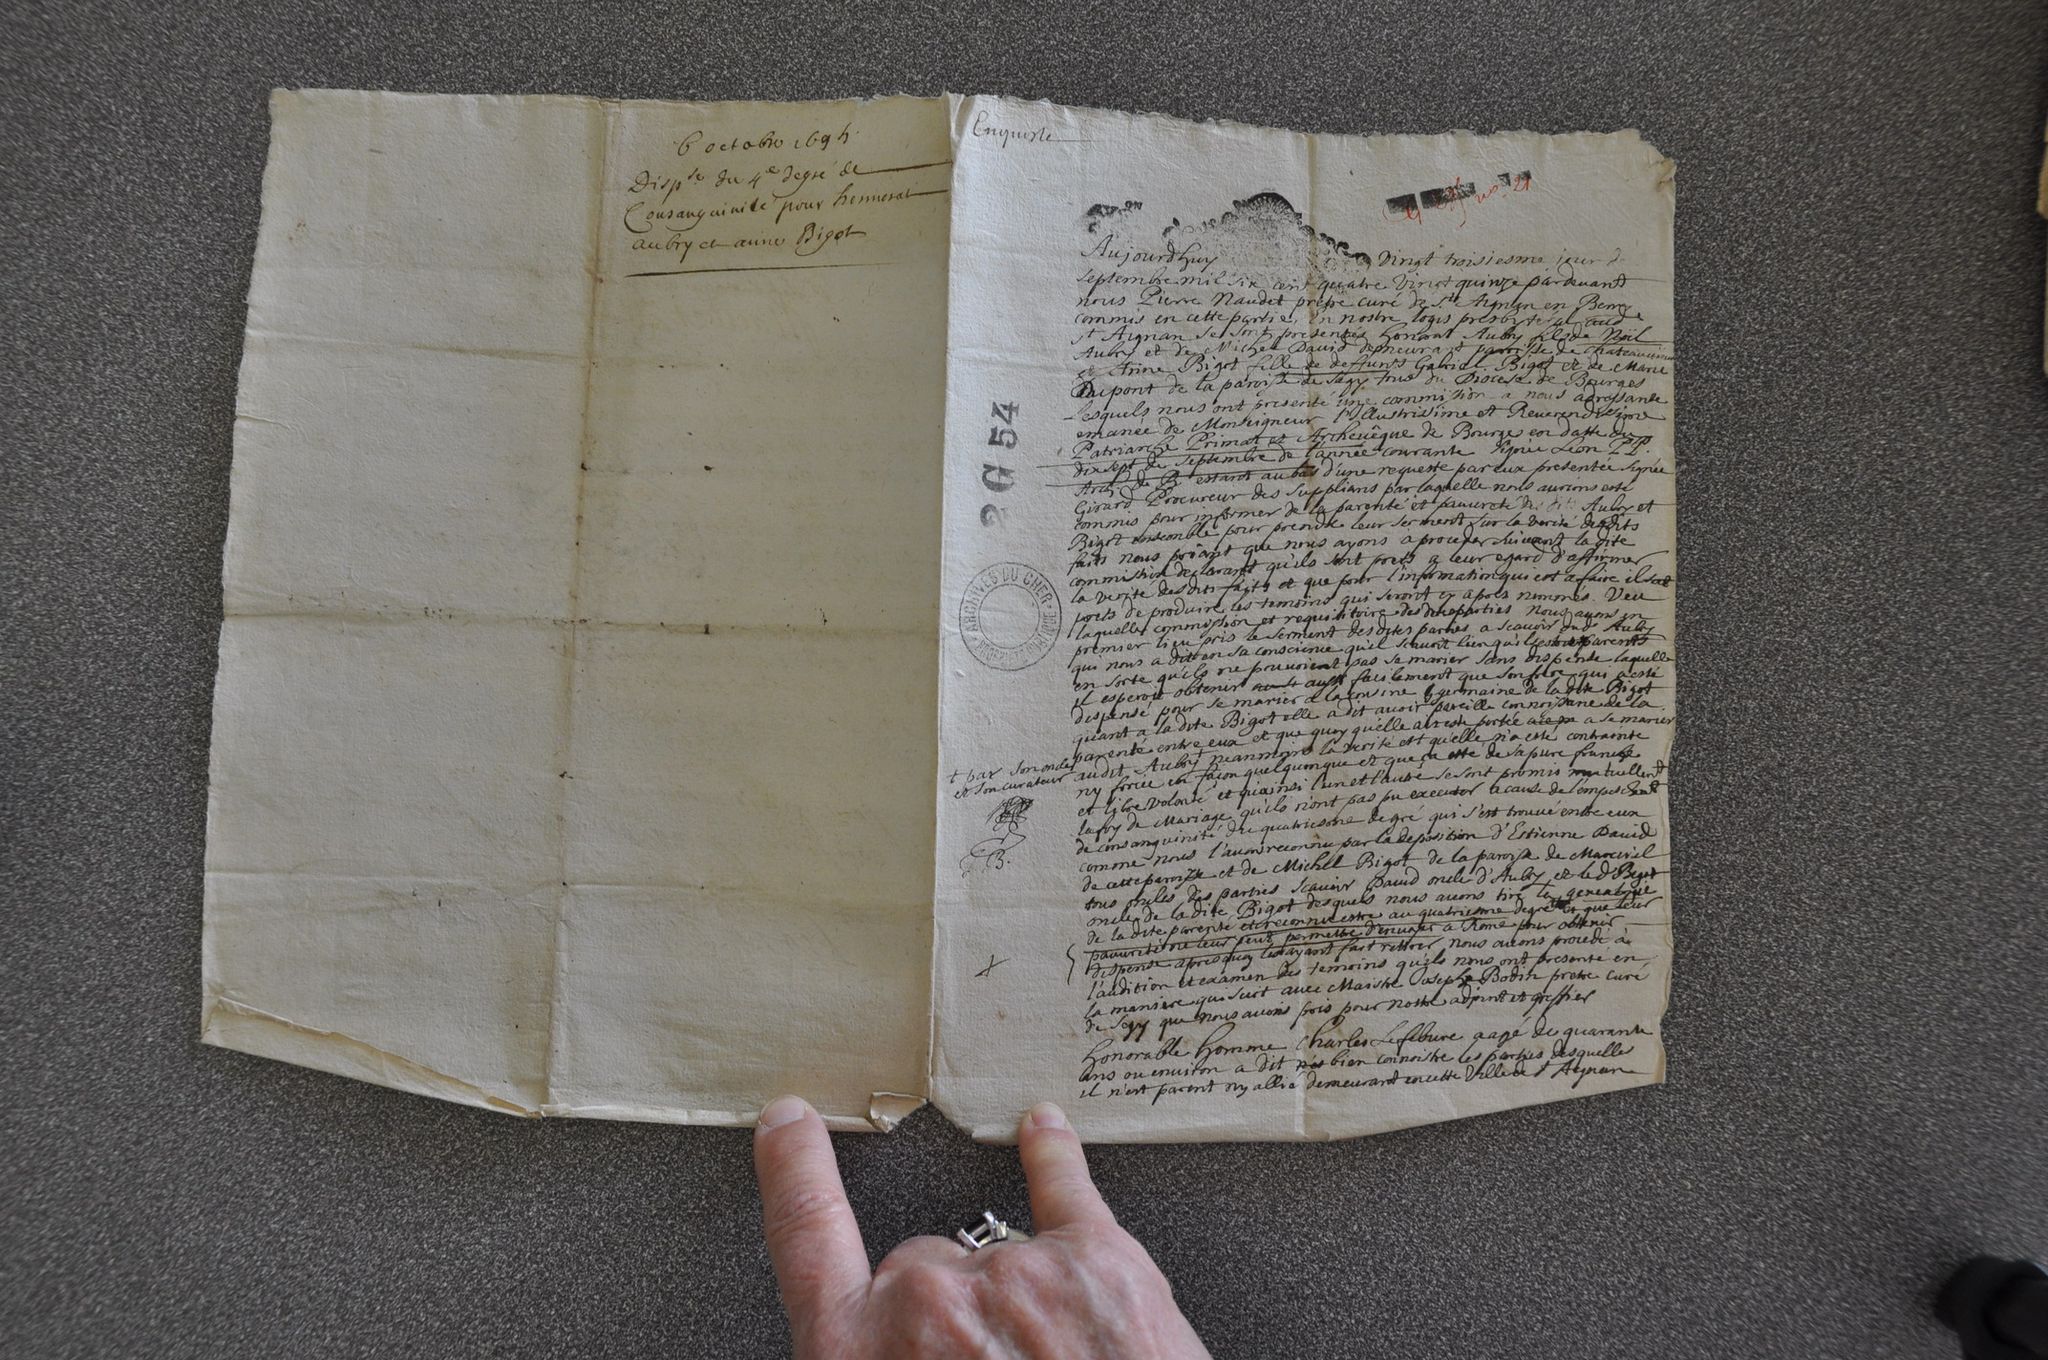 6 octobre 1695
Disp.se du 4e degré de
Consanguinité pour honnorat
aubry et anne Bigot
Enqueste
Aujourdhuy Vingt troisiesme jour de
septembre mil six cent quatre Vingt quinze pardevant
nous Pierre Naudet prêtre curé de St Aignan en Berry
commis en cette partie, en nostre logis presbyteral aud.
St Aignan se sont presentés Honorat Aubry fils de Noël
Aubry et de Michee David demeurant parroisse de Chateauvieux
et Anne Bigot fille de deffunts Gabriel Bigot et de Marie
Dupont de la paroisse de Segy tous du Diocese de Bourges
Lesquels nous ont presenté une commission a nous adressante
emanée de Monseigneur l'Illustrissime et Reverendissime
Patriarche Primat et Archevêque de Bourges en datte du
dixsept de septembre de l'année courante Signée Léon PP.
Arch. de B. estant au bas d'une requeste par eux presentée signée
Girard Procureur des supplians par laquelle nous aurions esté
commis pour informer de la parenté et pauvreté desdits Aubry et
Bigot ensemble pour prendre leur serment sur la verité desdits
faits nous priant que nous ayons a proceder suivant la dite
commission declarant qu'ils sont prets a leur egard d'affirmer
la verité desdits faits et que pour l'information qui est a faire ils sont
prets de produire les temoins qui seront cy apres nommés. Veu
laquelle commission et requisitoire desdites parties Nous avons en
premier lieu pris le serment desdites parties a scavoir dud. Aubry
qui nous a dit en sa conscience qu'il scavoit bien qu'ils estoient parents
en sorte qu'ils ne pouvoient pas se marier sans dispense laquelle
il esperoit obtenir aussy facilement que son frere qui a esté
dispensé pour se marier a la cousine germaine de la dite Bigot
quant a la dite Bigot elle a dit avoir pareille connoissance de la
parenté entre eux et que quoy qu'elle ait esté portée a se marier
+ par son oncle
et son curateur
audit Aubry neanmoins la verité est qu'elle n'a esté contrainte
ny forcée en façon quelquonque et que ça esté de sa pure franche
et libre volonté et qu'ainsi l'un et l'autre se sont promis mutuellement
la foy de Mariage qu'ils n'ont pas pu executer a cause de l'empeschement
de consanguinité du quatriesme degré qui s'est trouvé entre eux
B.
comme nous l'avons reconnu par la deposition d'Estienne David
de cette paroisse et de Michel Bigot de la paroisse de Mareuil
tous oncles des parties scavoir David oncle d'Aubry et led. Bigot
oncle de la dite Bigot desquels nous avons tiré la genealogie
de la dite parenté et reconnu estre au quatriesme degré et que leur
pauvreté ne leur peut permettre d'envoyer a Rome pour obtenir
dispense apres quoy les ayant fait retirer nous avons procedé à
l'audition et examen des temoins qu'ils nous ont presenté en
la maniere qui suit avec Maistre Joseph Bodin prêtre curé
de Segy que nous avons pris pour nostre adjoint et greffier
Honorable homme Charles Lefebure aagé de quarante
ans ou environ a dit bien connoistre les parties desquelles
il n'est parent ny allié demeurant en cette Ville de St Aignan
2 G 54
ARCHIVES DU CHER